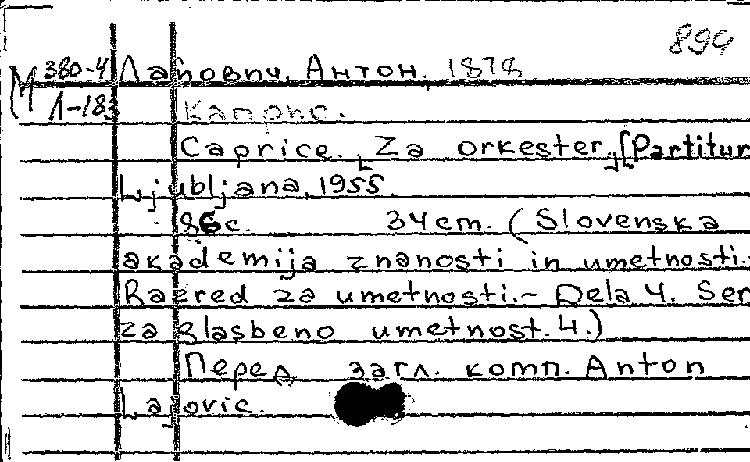 894
М 380-4 Лајовиц, Антон, 1878
Л-183 Каприс.
Caprice. Za orkester. [Partitur
Ljubljana, 1955.
86 с. 34 cm. (Slovenska
akademija znanosti in umetnosti.
Razred za umetnosti.- Dela 4. Ser
za glasbeno umetnost. 4.)
Перед загл. комп. Anton
Lajovic.